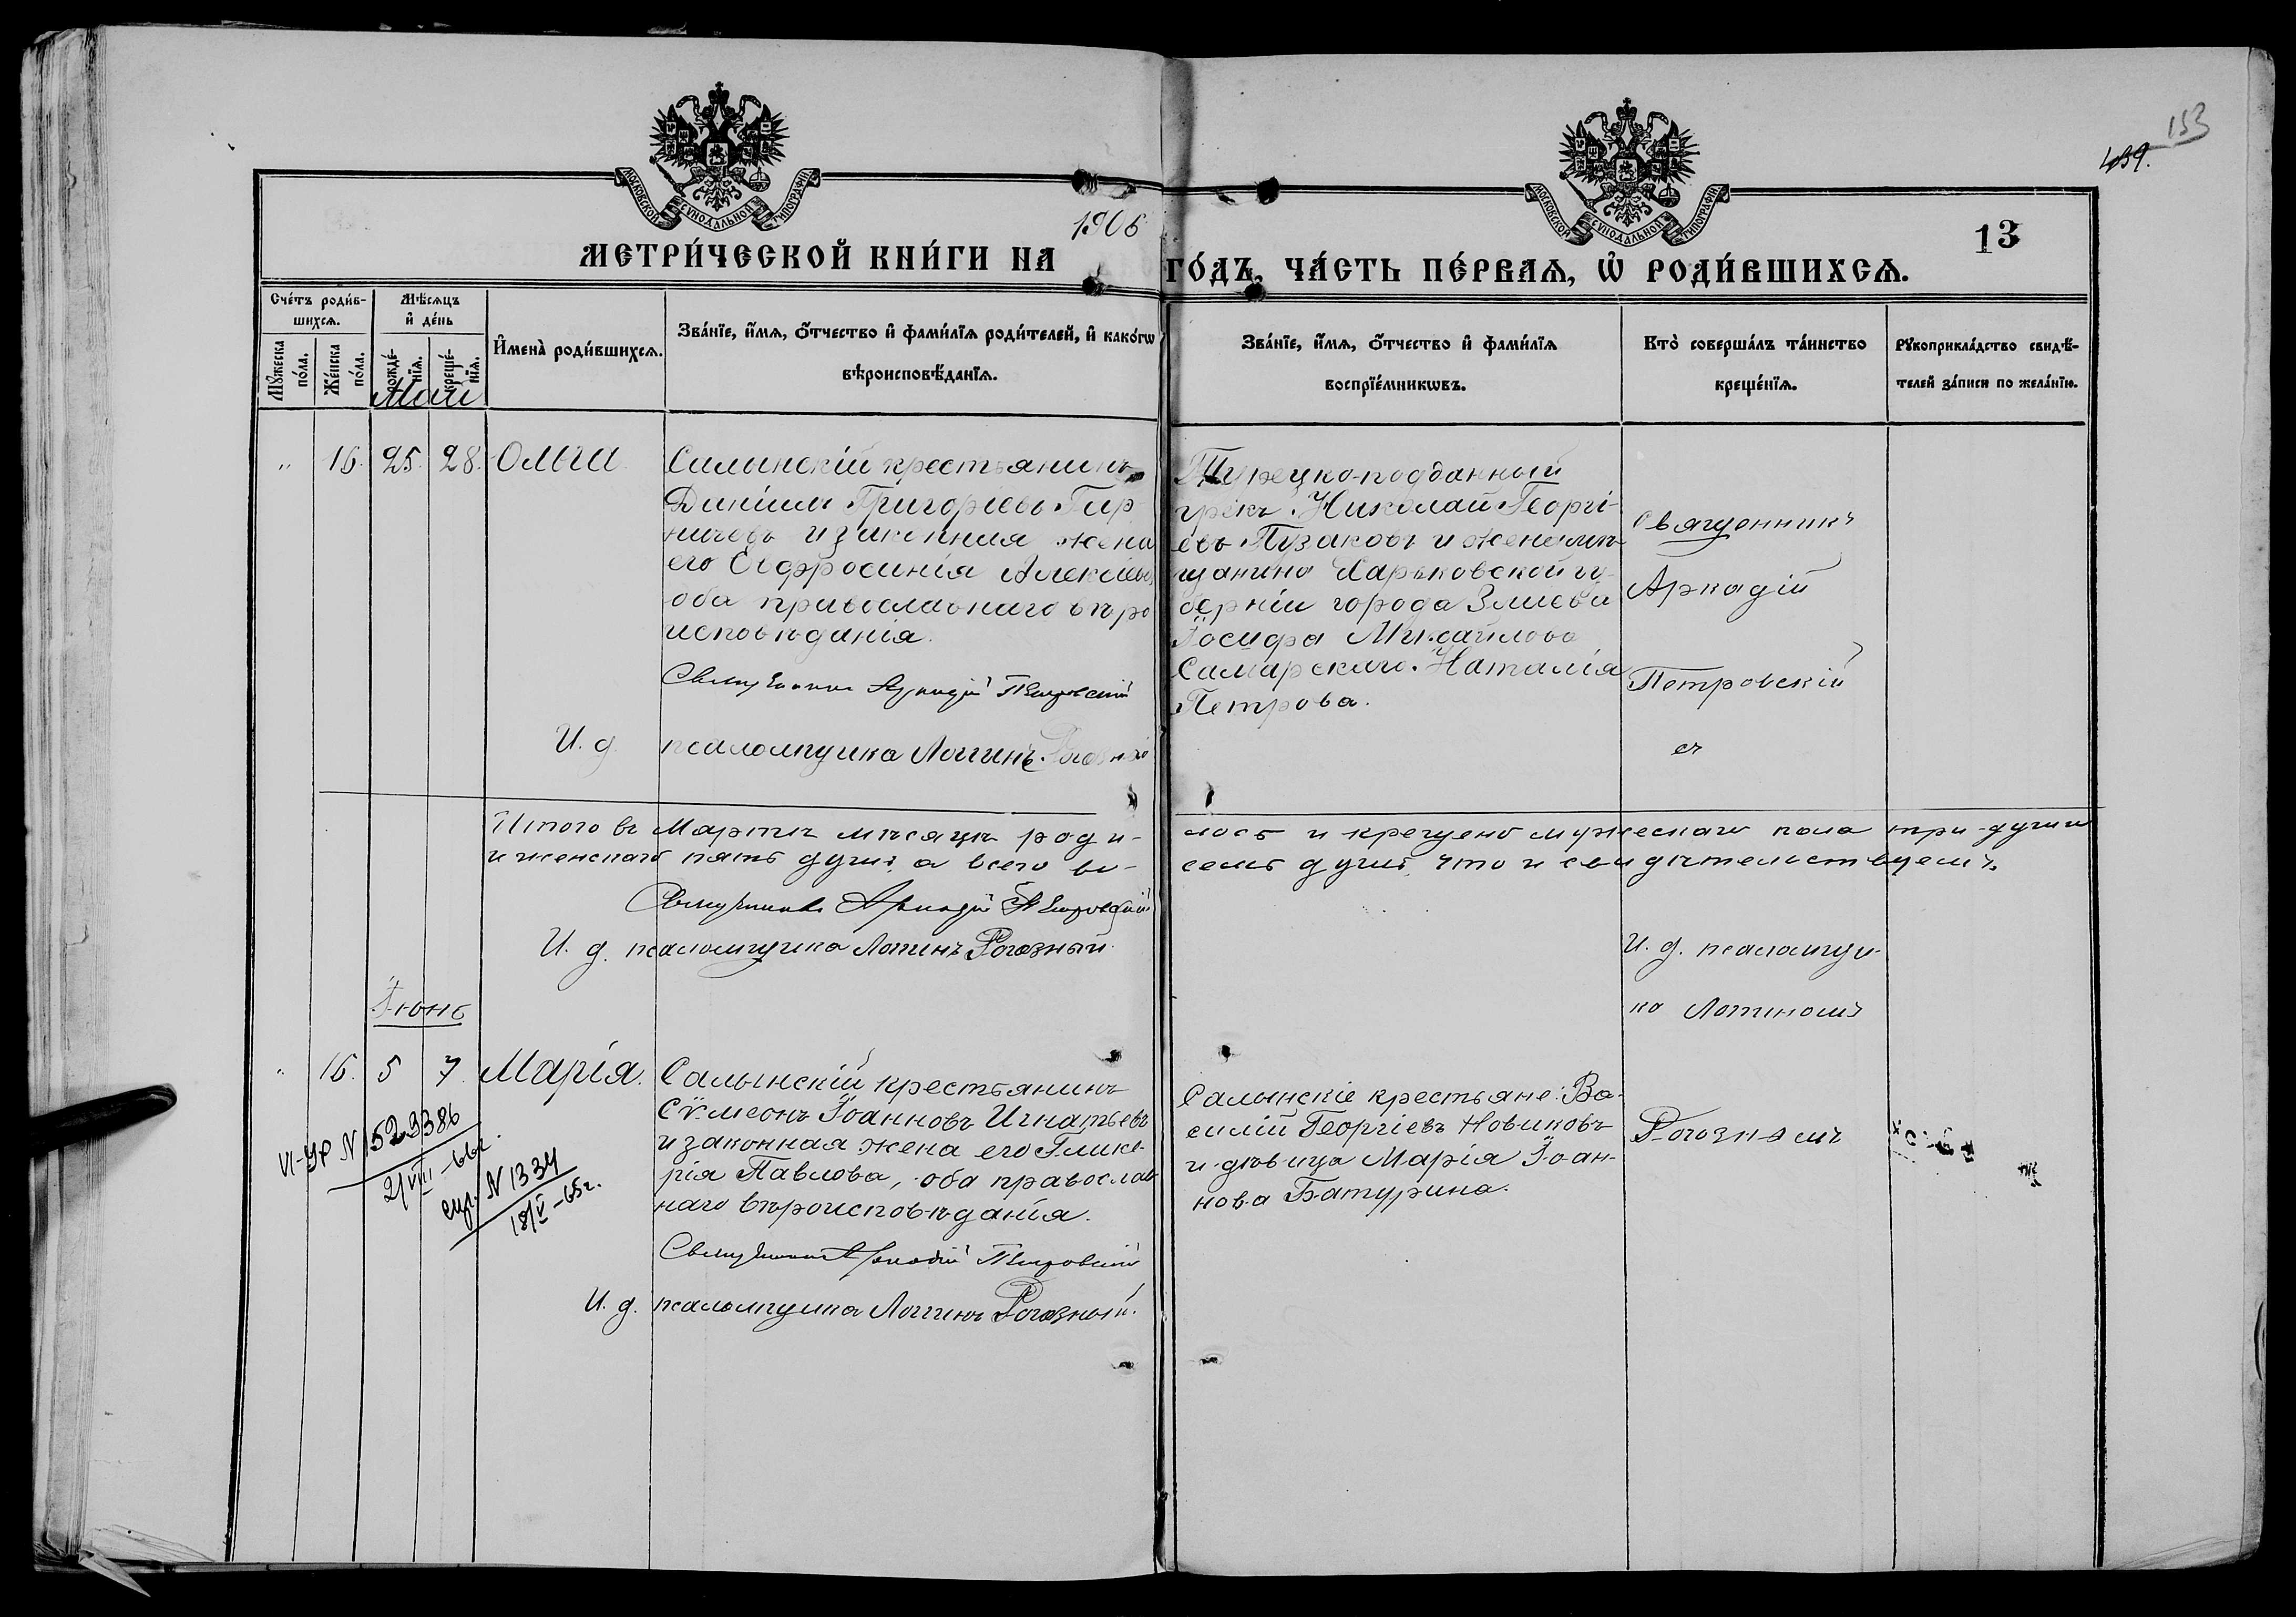 153
439.
МОСКОВСКОЙ СѴНОДАЛЬНОЙ ТИПОГРАФІИ
МОСКОВСКОЙ СѴНОДАЛЬНОЙ ТИПОГРАФІИ
13
МЕТРИ́ЧЕСКОЙ КНИ́ГИ НА 1906 ГО́ДЪ, ЧА́СТЬ ПЕ́РВАѦ, Ѡ҆ РОДИ́ВШИХСѦ.
Сче́тъ роди́в-
шихсѧ.
Мꙋ́жеска по́ла.
Же́нска по́ла.
Мѣ́сѧцъ
и҆ де́нь
рожде́-
нїѧ.
креще́-
нїѧ.
И҆мена̀ роди́вшихсѧ.
Зва́нїе, и҆́мѧ, ѻ҆́тчество и҆ фами́лїѧ роди́телей, и҆ како́гѡ
вѣроисповѣ́данїѧ.
Зва́нїе, и҆́мѧ, ѻ҆́тчество и҆ фами́лїѧ
воспрїе́мникѡвъ.
Кто̀ соверша́лъ та́инство
креще́нїѧ.
Рꙋкоприкла́дство свидѣ́-
телей за́писи по жела́нїю.
Май
" 16. 25. 28. Ольга.
Салынскій крестьянинъ
Даніилъ Григоріевъ Гир-
ничевъ и законная жена
его Евфросинія Алексіева
оба православнаго вѣро
исповѣданія.
Священникъ Аркадій Петровскій
И. д. псаломщика Логгинъ Рогозный
Турецко-подданный
грекъ Николай Георгі-
евъ Пузаковъ и жена мѣ-
щанина Харьковской гу-
берніи города Зміева
Іосифа Михайлова
Самарскаго Наталія
Петрова.
Священникъ
Аркадій
Петровскій
съ
Итого въ Мартѣ мѣсяцѣ роди-лось и крещено мужескаго пола три души
и женскаго пять душъ, а всего во-семь душъ, что и свидѣтельствуемъ.
Священникъ Аркадій Петровскій
И. д. псаломщика Логгинъ Рогозный.
И. д. псаломщи-
ка Логгиномъ
Іюнь
" 16. 5 7. Марія.
Салынскій крестьянинъ
Сѵмеонъ Іоанновъ Игнатьевъ
и законная жена его Глике-
рія Павлова, оба православ
наго вѣроисповѣданія.
Священникъ Аркадій Петровскій
И. д. псаломщика Логгинъ Рогозный.
Салынскіе крестьяне: Ва-
силій Георгіевъ Новиковъ
и дѣвица Марія Іоан-
нова Батурина.
Рогознымъ
VI-УР N 1523386
2/VIII-66г.
N 1334
18/V-65г.